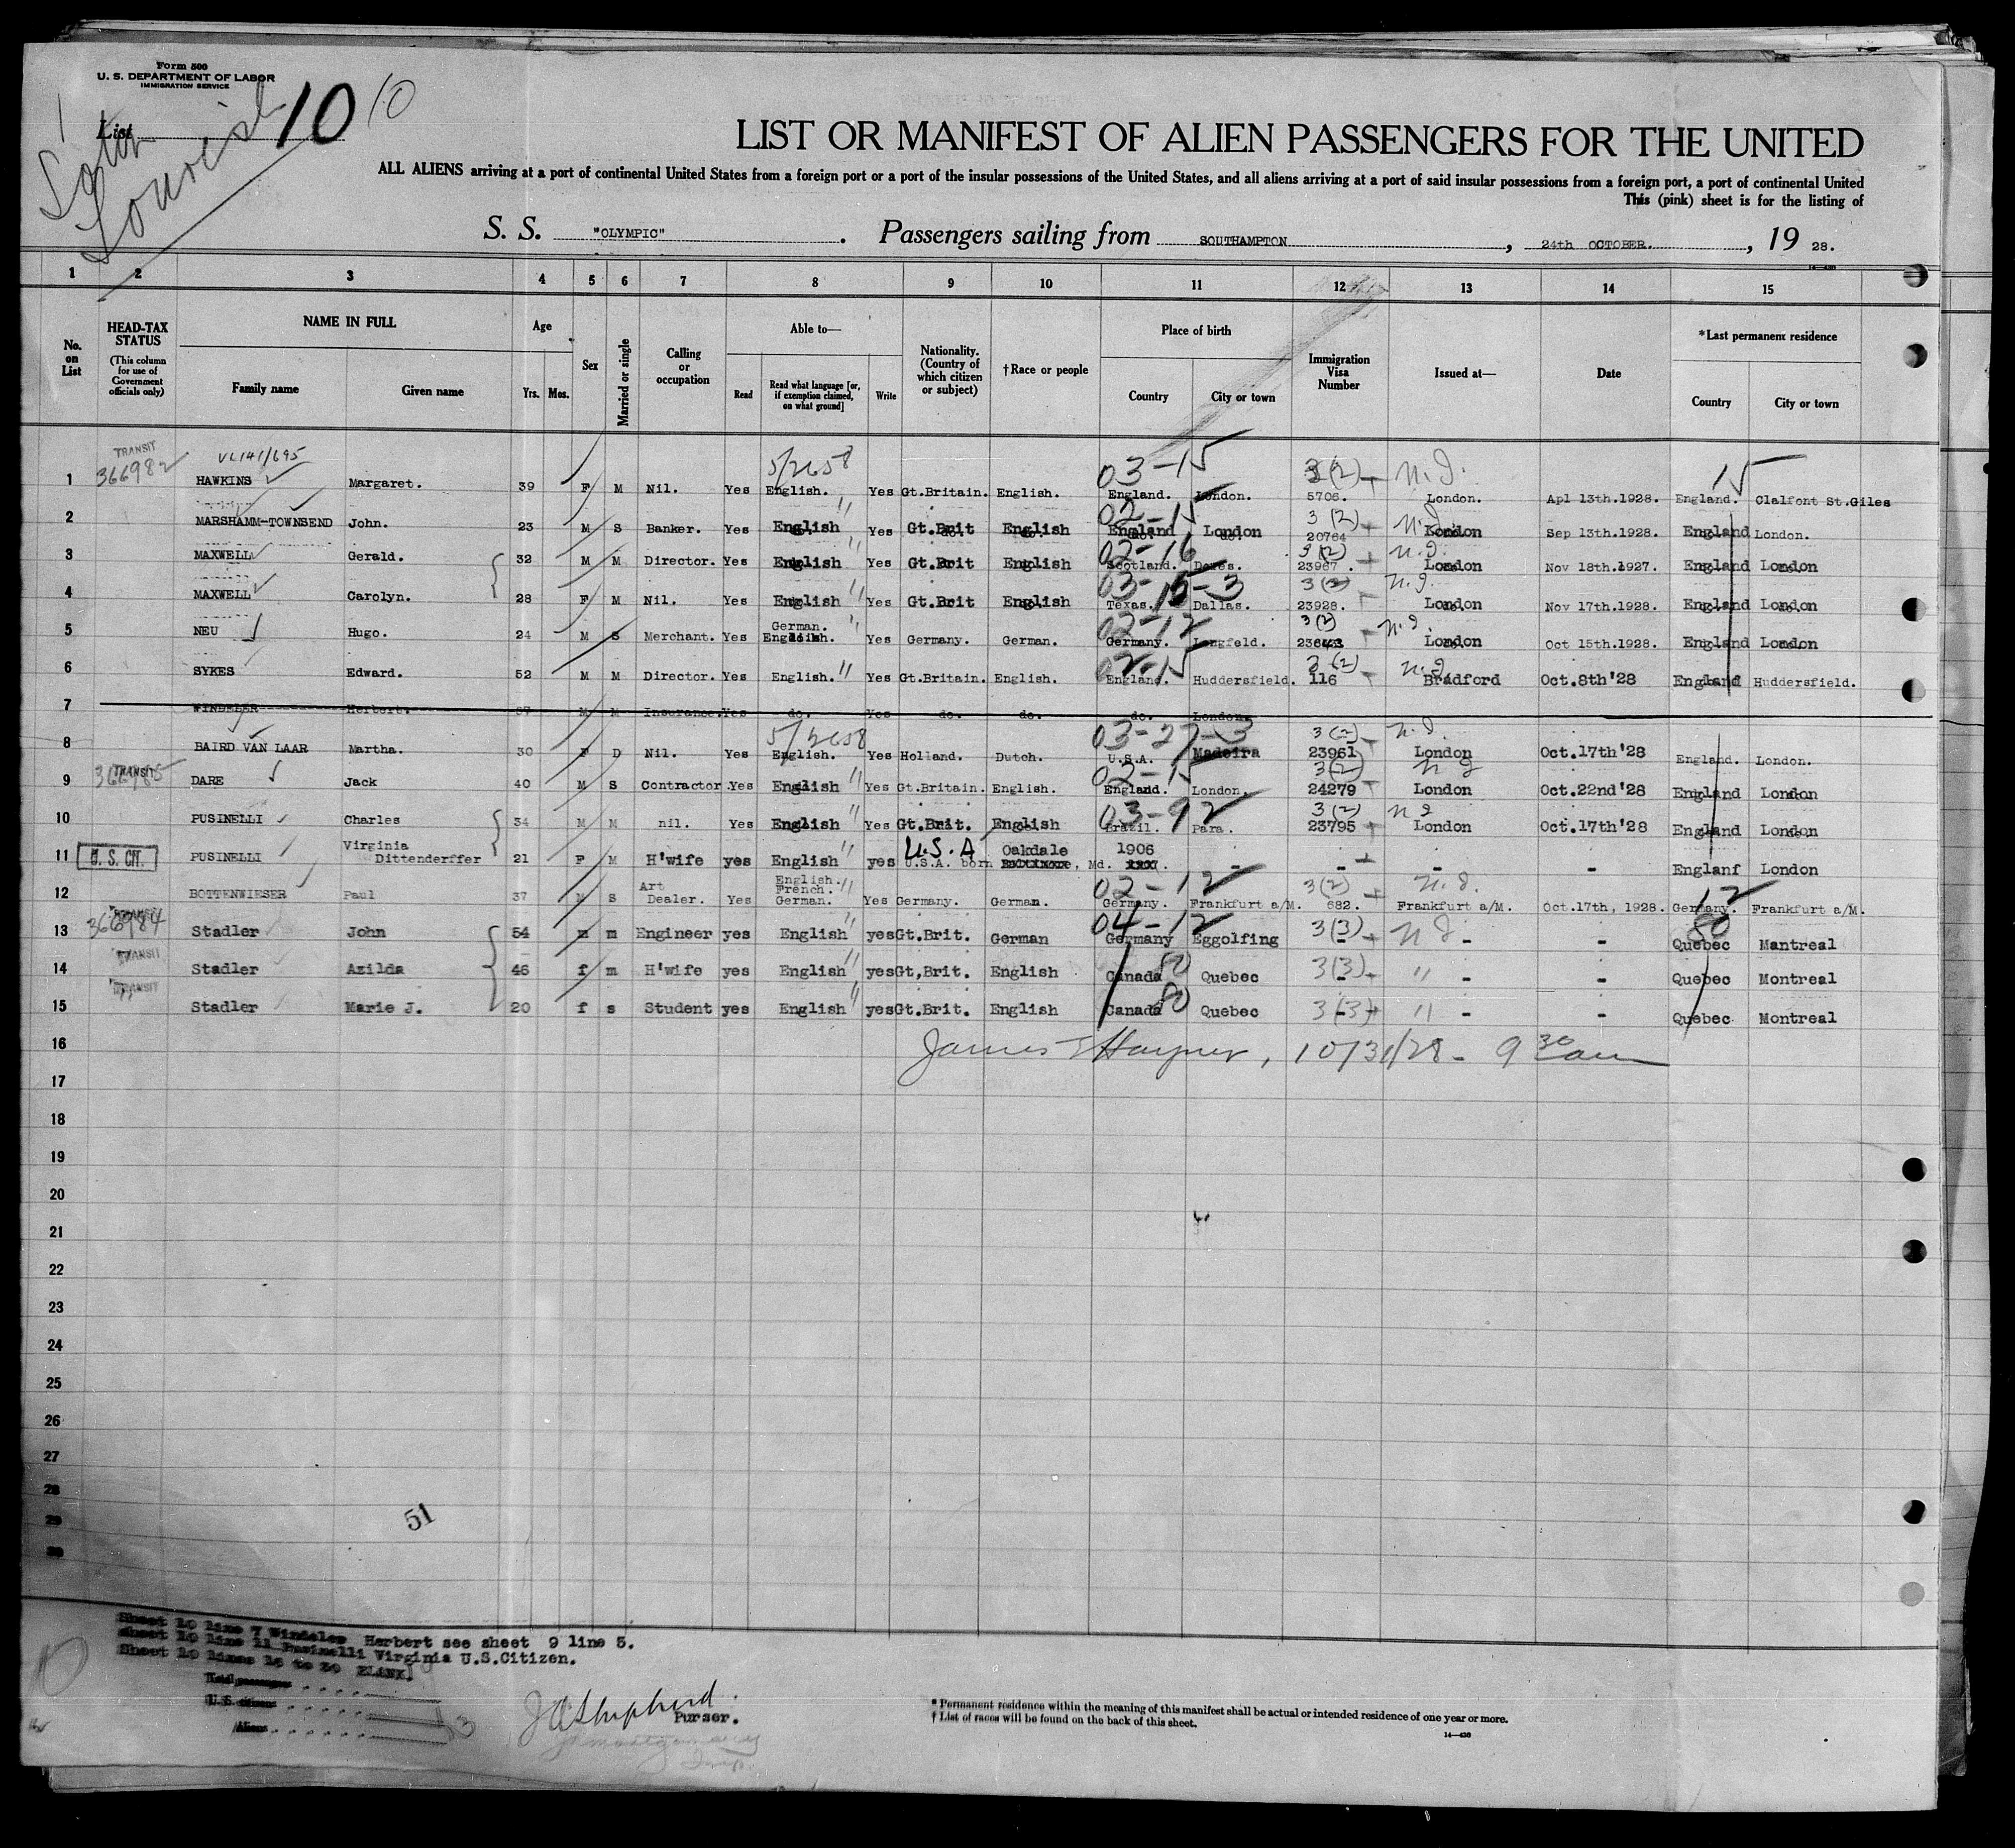 Form 500
U. S. DEPARTMENT OF LABOR
IMMIGRATION SERVICE
List 10 10
LIST OR MANIFEST OF ALIEN PASSENGERS FOR THE UNITED
ALL ALIENS arriving at a port of continental United States from a foreign port or a port of the insular possessions of the United States, and all aliens arriving at a port of said insular possessions from a foreign port, a port of continental United
This (pink) sheet is for the listing of
S. S. "OLYMPIC". Passengers sailing from SOUTHAMPTON, 24th OCTOBER., 19 28.
14—430
1 2 3 4 5 6 7 8 9 10 11 12 13 14 15
No. on List
HEAD-TAX STATUS (This column for use of Government officials only)
NAME IN FULL Family name Given name
Age Yrs. Mos.
Sex
Married or single
Calling or occupation
Able to— Read Read what language [or, if exemption claimed, on what ground] Write
Nationality. (Country of which citizen or subject)
†Race or people
Place of birth Country City or town
Immigration Visa Number
Issued at—
Date
*Last permanent residence Country City or town
TRANSIT 5/2658 03-15 3(2) 15
1 366982 HAWKINS Margaret. 39 F M Nil. Yes English. Yes Gt.Britain. English. England. London. 5706. London. Apl 13th.1928. England. Clalfont St.Giles
02-15 3(2)
2 MARSHAMM-TOWNSEND John. 23 M S Banker. Yes English Yes Gt.Brit English England London 20764 London Sep 13th.1928. England London.
02-16 3(2)
3 MAXWELL Gerald. 32 M M Director. Yes English Yes Gt.Brit English Scotland. 23967 London Nov 18th.1927. England London
03-15-3
4 MAXWELL Carolyn. 28 F M Nil. Yes English Yes Gt.Brit English Texas. Dallas. 23928. London Nov 17th.1928. England London
02-12 3(2)
5 NEU Hugo. 24 M S Merchant. Yes German. English. Yes Germany. German. Germany. Langfeld. London Oct 15th.1928. England London
02-15 3(2)
6 SYKES Edward. 52 M M Director. Yes English. Yes Gt.Britain. English. England. Huddersfield. 116 Bradford Oct.8th'28 England Huddersfield.
7 WINDELER Herbert. M M Insurance. Yes do. Yes do. do. do. London.
5/2658 03-27-3 3(2)
8 BAIRD VAN LAAR Martha. 30 F D Nil. Yes English. Yes Holland. Dutch. U.S.A. Madeira 23961 London Oct.17th'28 England. London.
TRANSIT 02-15 3(2)
9 366985 DARE Jack 40 M S Contractor. Yes English Yes Gt.Britain. English. England. London. 24279 London Oct.22nd'28 England London
03-92 3(2)
10 PUSINELLI Charles 34 M M nil. Yes English Yes Gt.Brit. English Brazil. Para. 23795 London Oct.17th'28 England London
U.S.A Oakdale 1906
11 U. S. CIT. PUSINELLI Virginia Dittenderffer 21 F M H'wife yes English yes U.S.A. born Baltimore, Md. 1907. - - - - Englanf London
02-12 3(2) 12
12 BOTTENWIESER Paul 37 M S Art Dealer. Yes English. French. German. Yes Germany. German. Germany. Frankfurt a/M. 682. Frankfurt a/M. Oct.17th, 1928. Germany. Frankfurt a/M.
TRANSIT 04-12 3(3) 80
13 366984 Stadler John 54 m m Engineer yes English yes Gt.Brit. German Germany Eggolfing - - - Quebec Mantreal
TRANSIT 80 3(3)
14 Stadler Azilda 46 f m H'wife yes English yes Gt,Brit. English Canada Quebec - - - Quebec Montreal
TRANSIT 80 3(3)
15 Stadler Marie J. 20 f s Student yes English yes Gt.Brit. English Canada Quebec - - - Quebec Montreal
16 10/31/28 - 9 30 am
17
18
19
20
21
22
23
24
25
26
27
28
29
30
51
Sheet 10 line 7 Windeler Herbert see sheet 9 line 5.
Sheet 10 line 11 Pusinelli Virginia U.S.Citizen.
Sheet 10 lines 16 to 30 BLANK.
Total passengers
U. S. citizens
Aliens 13
Purser.
* Permanent residence within the meaning of this manifest shall be actual or intended residence of one year or more.
† List of races will be found on the back of this sheet.
14—430